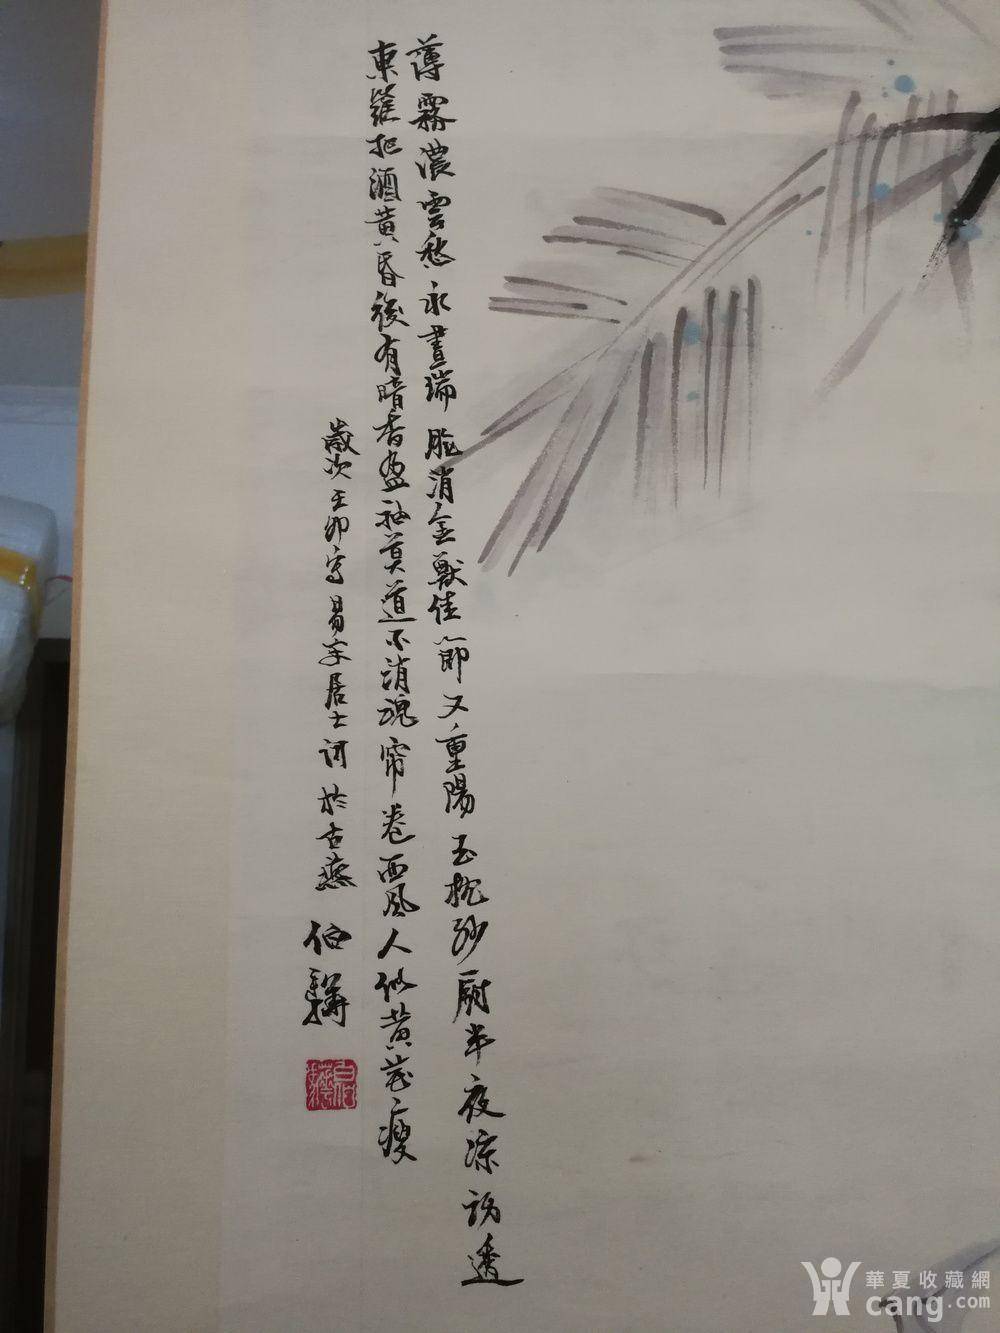 薄霧濃雲愁永晝瑞腦消金獸佳節又重陽玉枕紗厨半夜涼初透
東籬把酒黃昏後有暗香盈袖莫道不消魂帘卷西風人似黃花瘦
歲次壬卯寫易安居士詞於古燕 伯驊
華夏收藏網
cang.com